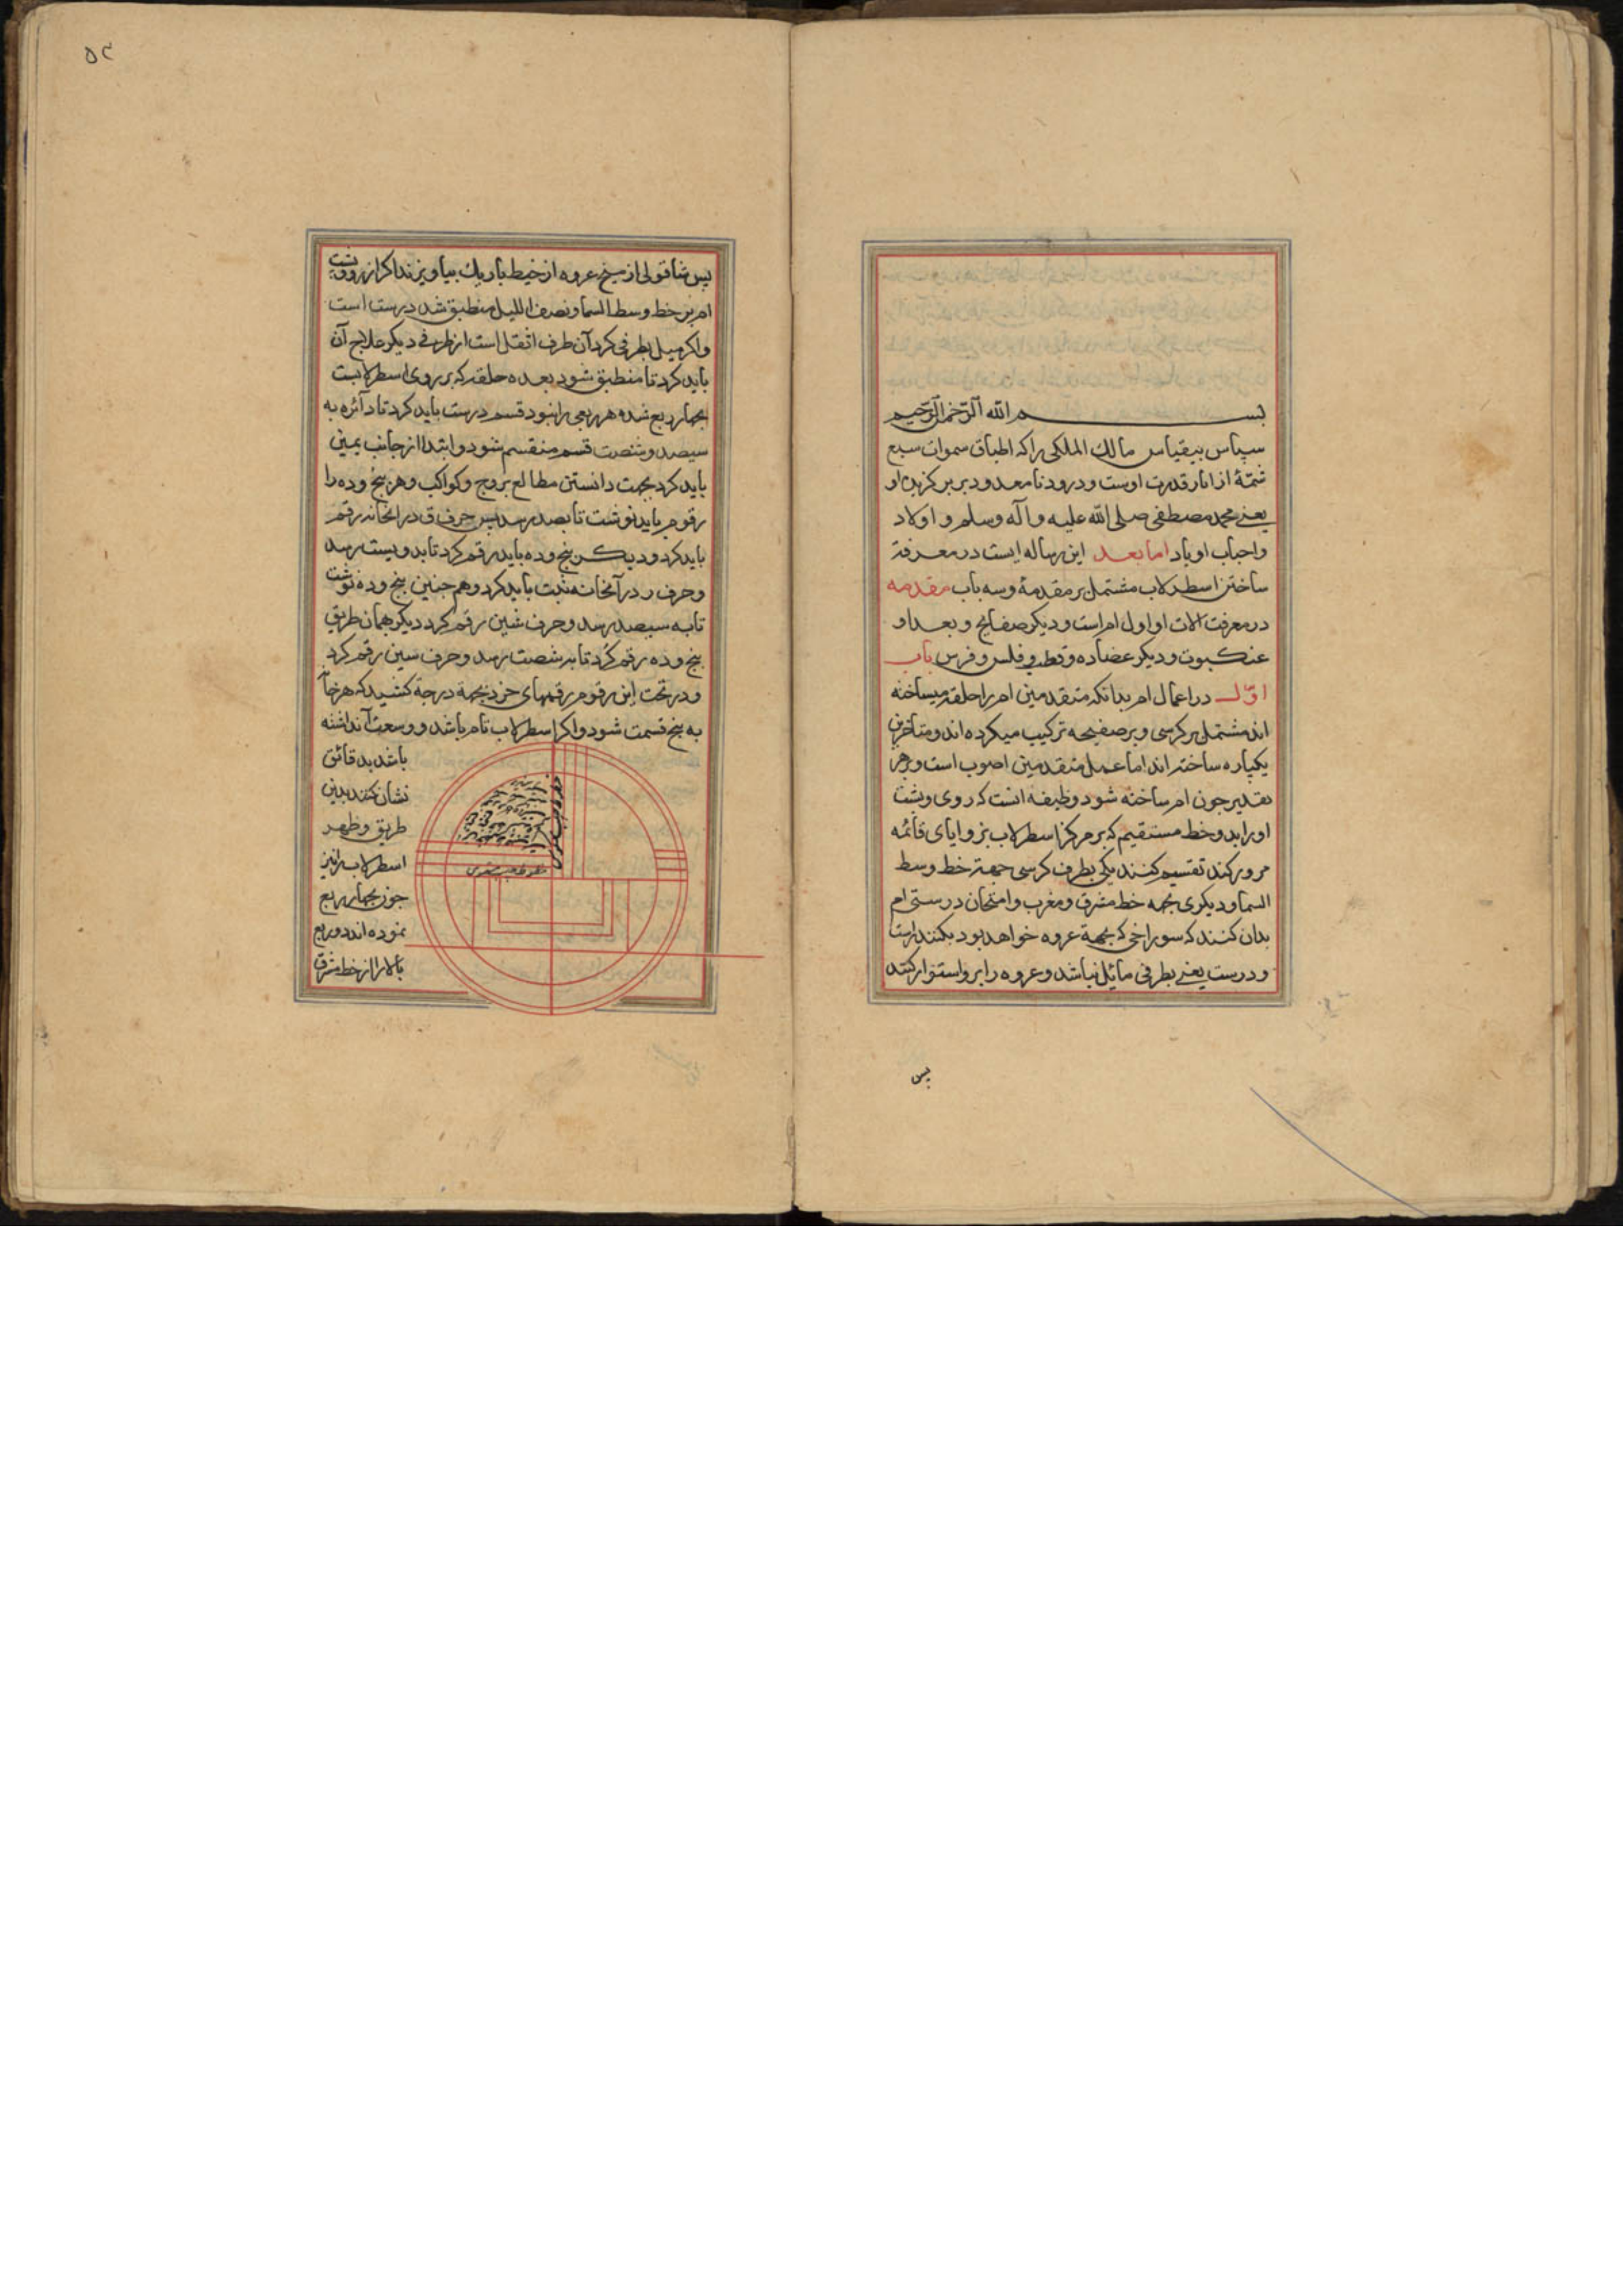 بسم الله الرحمن الرحيم
سپاس بیقیاس مالك الملكی را که اطباق سموات سبع
شمّهٔ از اثار قدرت اوست و درود نامعدود بر برگزیدهٔ او
یعنی محمد مصطفی صلی الله علیه وآله وسلم و اولاد
واحباب او باد اما بعد این رساله ایست در معرفة
ساختن اسطرلاب مشتمل بر مقدمهٔ وسه باب مقدمه
در معرفت الات او اول ام است و دیکر صفایح و بعد او
عنکبوت و دیکر عضاده وقطب و فلس و فرس باب
اوّل در اعمال ام بدانکه متقدمین ام را حلقه میساخته
اند مشتمل بر کرسی و بر صفیحه ترکیب میکرده اند و متأخرین
یکپاره ساخته اند اما عمل متقدمین اصوب است و بر هر
تقدیر چون ام ساخته شود وظیفه انست که روی و پشت
او را بدو خط مستقیم که بر مرکز اسطرلاب بزوایای قائمه
مرور کند تقسیم کنند یکی بطرف کرسی جهة خط وسط
السما و دیکری بجهه خط مشرق ومغرب وامتحان درستی ام
بدان کنند که سوراخی که بجهة عروه خواهد بود بکنند راست
و درست یعنی بطرفی مائل نباشد وعروه را برو استوار کنند
پس
۵۲
پس شاقولی از میخ عروه از خیط باریك بیاویزند اکر از روی پشت
ام بر خط وسط السما ونصف اللیل منطبق شد درست است
واکر میل بطرفی کرد آن طرف اثقل است از طرف دیکر علاج آن
باید کرد تا منطبق شود بعده حلقه که بر روی اسطرلابست
بچهار ربع شده هر ربعی را بنود قسم درست باید کرد تا دائره به
سیصد وشصت قسم منقسم شود و ابتدا از جانب یمین
باید کرد بجهت دانستن مطالع بروج وکواکب وهر پنج وده را
رقوم باید نوشت تا بصد رسد پس حرف ق در انخانه رقم
باید کرد و دیگر پنج وده باید رقم کرد تا بدویست رسد
وحرف ر در آنخانه ثبت باید کرد وهم چنین پنج وده نوشت
تا به سیصد رسد وحرف شین رقم کرد دیکر همان طریق
پنج وده رقم کرد تا به شصت رسد وحرف سین رقم کرد
ودر تحت این رقوم رقمهای خرد بجهة درجة کشید که هر خانه
به پنج قسمت شود واکر اسطرلاب تام باشد ووسعت آنداشته
باشد بدقائق
نشان کنند بدین
طریق وظهر
اسطرلاب را نیز
چون بچهار ربع
نموده اند دو ربع
بالا را از خط مشرق